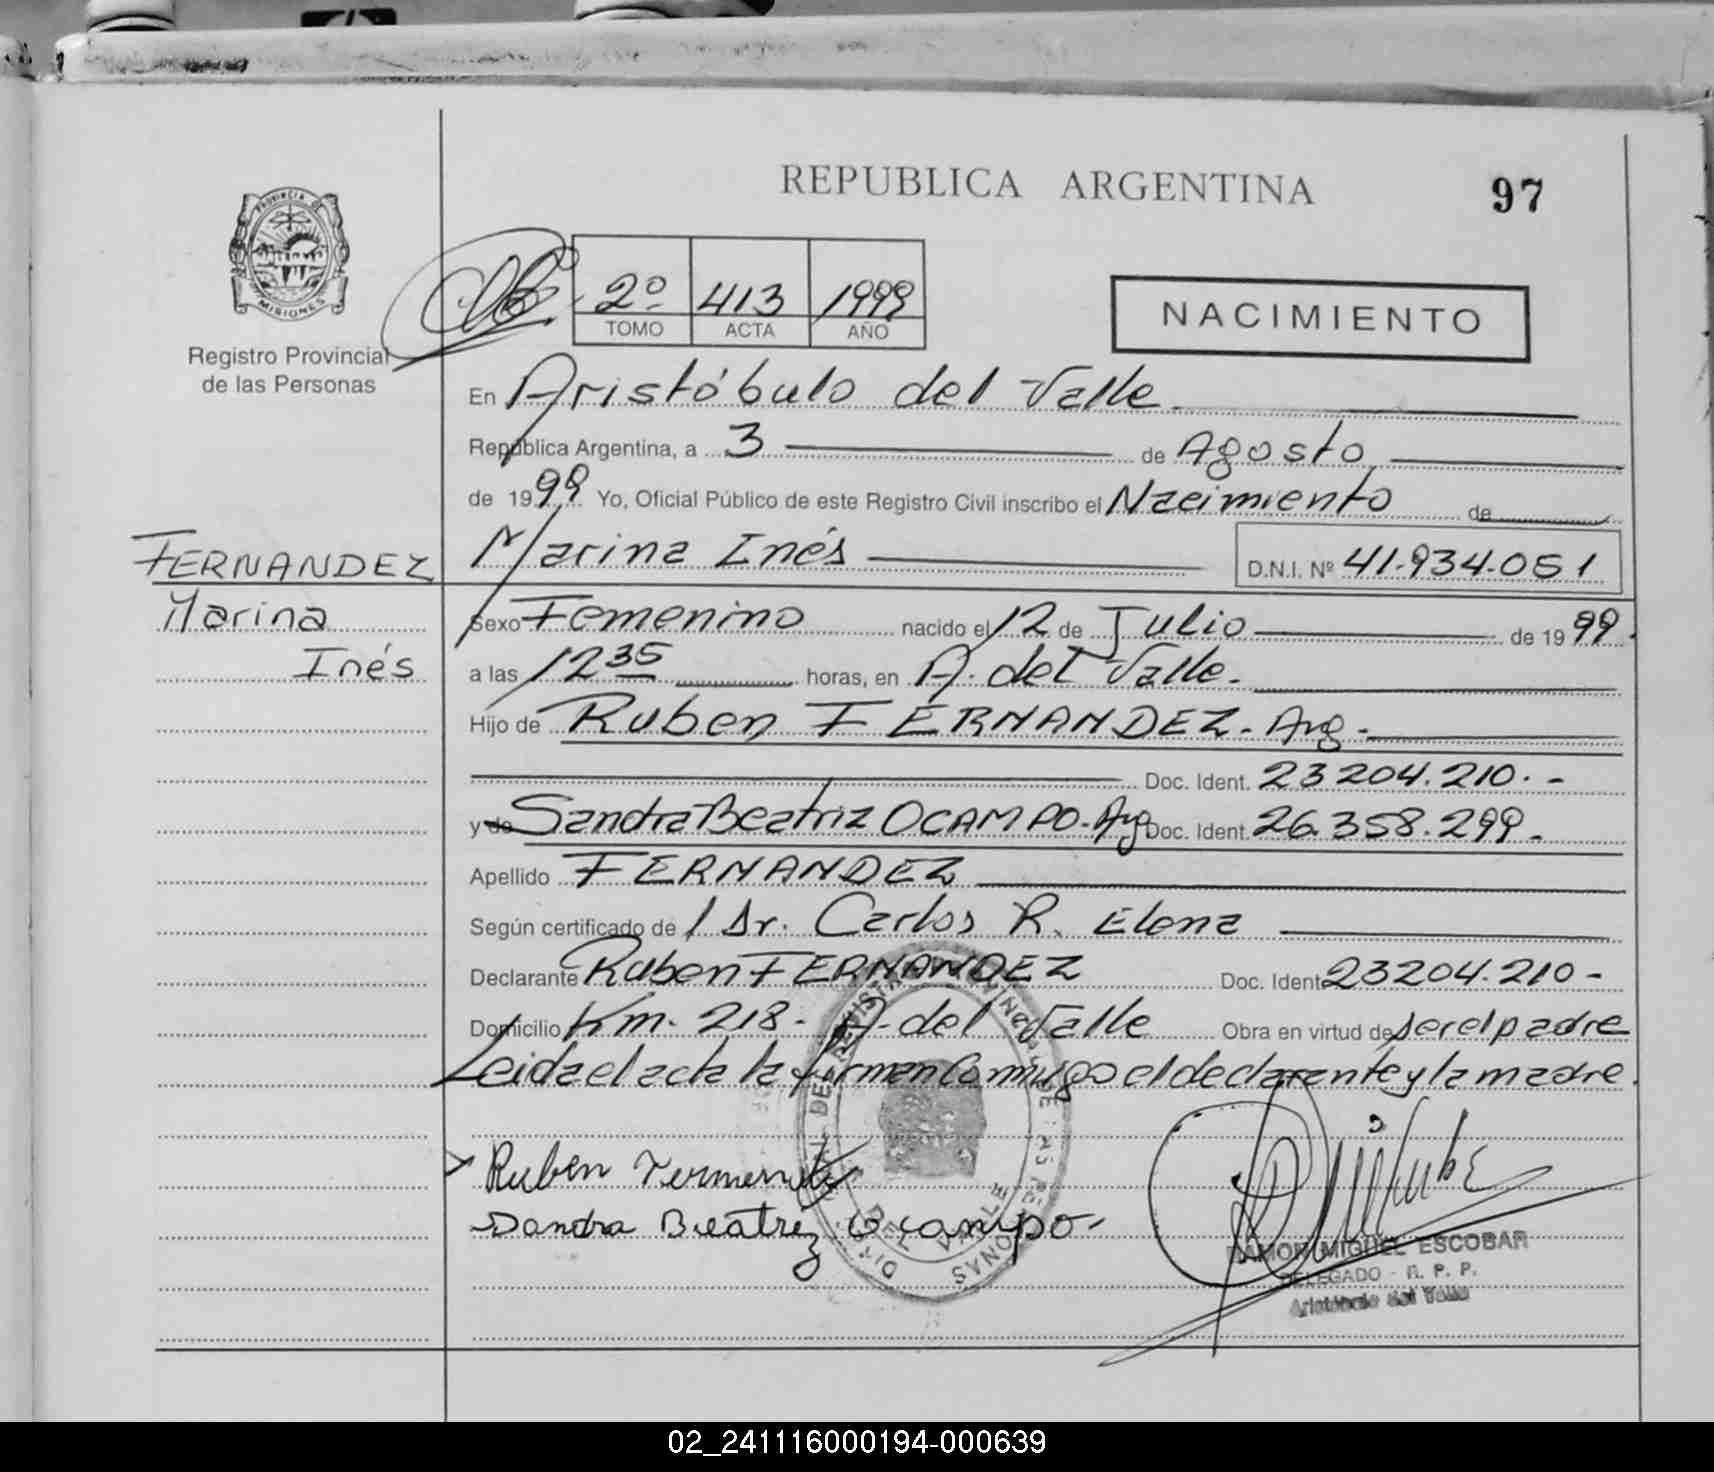 REPUBLICA ARGENTINA
97
PROVINCIA DE
MISIONES
Registro Provincial
de las Personas
2º 413 1999
TOMO ACTA AÑO
NACIMIENTO
En Aristóbulo del Valle
República Argentina, a 3 de Agosto
de 1999 Yo, Oficial Público de este Registro Civil inscribo el Nacimiento de
FERNANDEZ
Marina
Inés
Marina Inés D.N.I. Nº 41.934.051
Sexo Femenino nacido el 12 de Julio de 1999.
a las 12 35 horas, en A. del Valle.
Hijo de Ruben FERNANDEZ. Arg.
Doc. Ident. 23204.210.-
y de Sandra Beatriz OCAMPO. Arg Doc. Ident. 26.358.299.
Apellido FERNANDEZ
Según certificado de / Dr. Carlos R. Elena
Declarante Ruben FERNANDEZ Doc. Ident 23204.210-
Domicilio Km. 218. A. del Valle Obra en virtud de ser el padre
Leida el acta la firman Conmigo el declarante y la madre.
Ruben
Sandra Beatriz Ocampo.
RAMON MIGUEL ESCOBAR
DELEGADO - R. P. P.
Aristóbulo del Valle
02_241116000194-000639